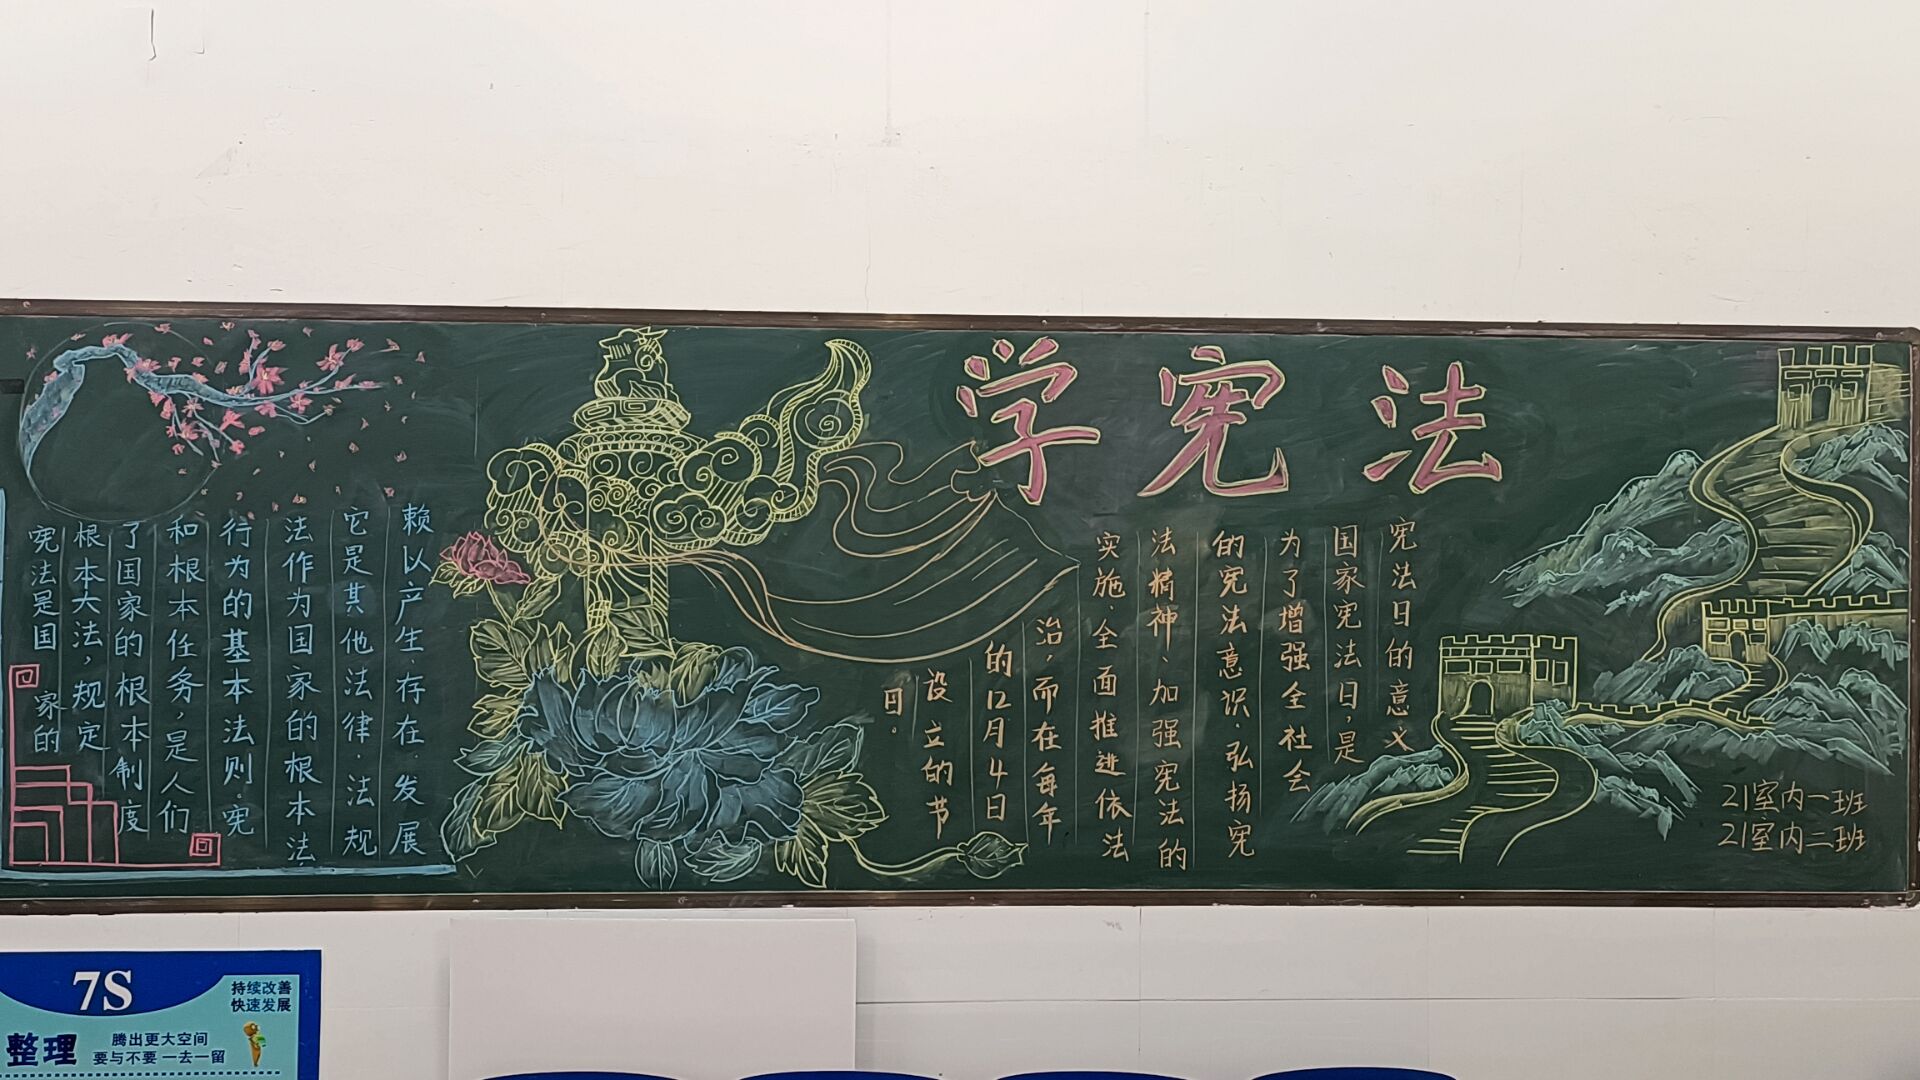 学宪法
宪法日的意义
国家宪法日,是
为了增强全社会
的宪法意识、弘扬宪
法精神、加强宪法的
实施、全面推进依法
治,而在每年
的12月4日
设立的节
日。
宪法是国家的
根本大法,规定
了国家的根本制度
和根本任务,是人们
行为的基本法则。宪
法作为国家的根本法
它是其他法律、法规
赖以产生、存在、发展
21室内一班
21室内二班
7S
持续改善
快速发展
整理
腾出更大空间
要与不要 一去一留